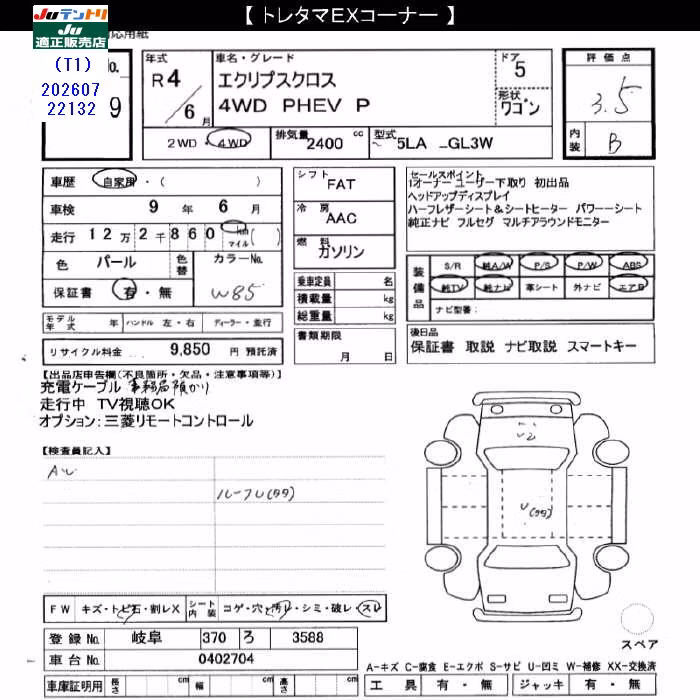 【 トレタマEXコーナー 】
Juテントリ
Ju
適正販売店
応用紙
(T1)
202607
22132
No.
9
年式
R 4
/ 6 月
車名・グレード
エクリプスクロス
4WD PHEV P
ドア
5
形状
ワゴン
2WD・4WD
排気量 2400 cc
型式
5LA _GL3W
評価点
3.5
内装
B
車歴 自家用・( )
車検 9 年 6 月
走行 12万2千860 km マイル ( )
色 パール
色替
カラーNo.
W85
保証書 有・無
シフト
FAT
冷房
AAC
燃料
ガソリン
乗車定員 名
積載量 kg
総重量 kg
セールスポイント
1オーナー ユーザー下取り 初出品
ヘッドアップディスプレイ
ハーフレザーシート&シートヒーター パワーシート
純正ナビ フルセグ マルチアラウンドモニター
装備品
S/R 純A/W P/S P/W ABS
純TV 純ナビ 革シート 外ナビ エアB
ナビ型番:
モデル年式 年 ハンドル 左・右 ディーラー・並行
リサイクル料金 9,850 円 預託済
書類期限
月 日
後日品
保証書 取説 ナビ取説 スマートキー
【出品店申告欄(不良箇所・欠品・注意事項等)】
充電ケーブル 事務局預かり
走行中 TV視聴OK
オプション:三菱リモートコントロール
【検査員記入】
AU
ルーフU(タタ)
U2
U(タタ)
FW キズ・トビ石・割レX
シート内装 コゲ・穴・汚レ・シミ・破レ・スレ
登録 No. 岐阜 370 ろ 3588
車台 No. 0402704
車庫証明用 長さ cm 幅 cm 高さ cm
スペア
A-キズ C-腐食 E-エクボ S-サビ U-凹ミ W-補修 XX-交換済
工具 有・無 ジャッキ 有・無